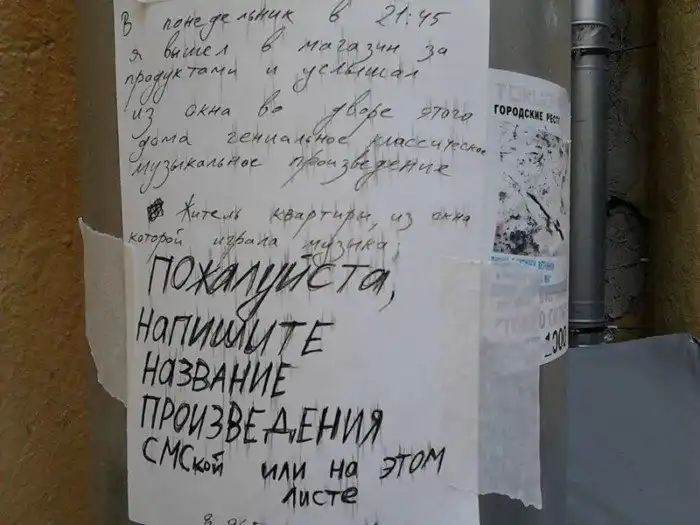 В понедельник в 21:45
я вышел в магазин за
продуктами и услышал
из окна во дворе этого
дома гениальное классическое
музыкальное произведение
Житель квартиры, из окна
которой играла музыка,
ПОЖАЛУЙСТА,
НАПИШИТЕ
НАЗВАНИЕ
ПРОИЗВЕДЕНИЯ
СМСкой или на этом
листе
ГОРОДСКИЕ